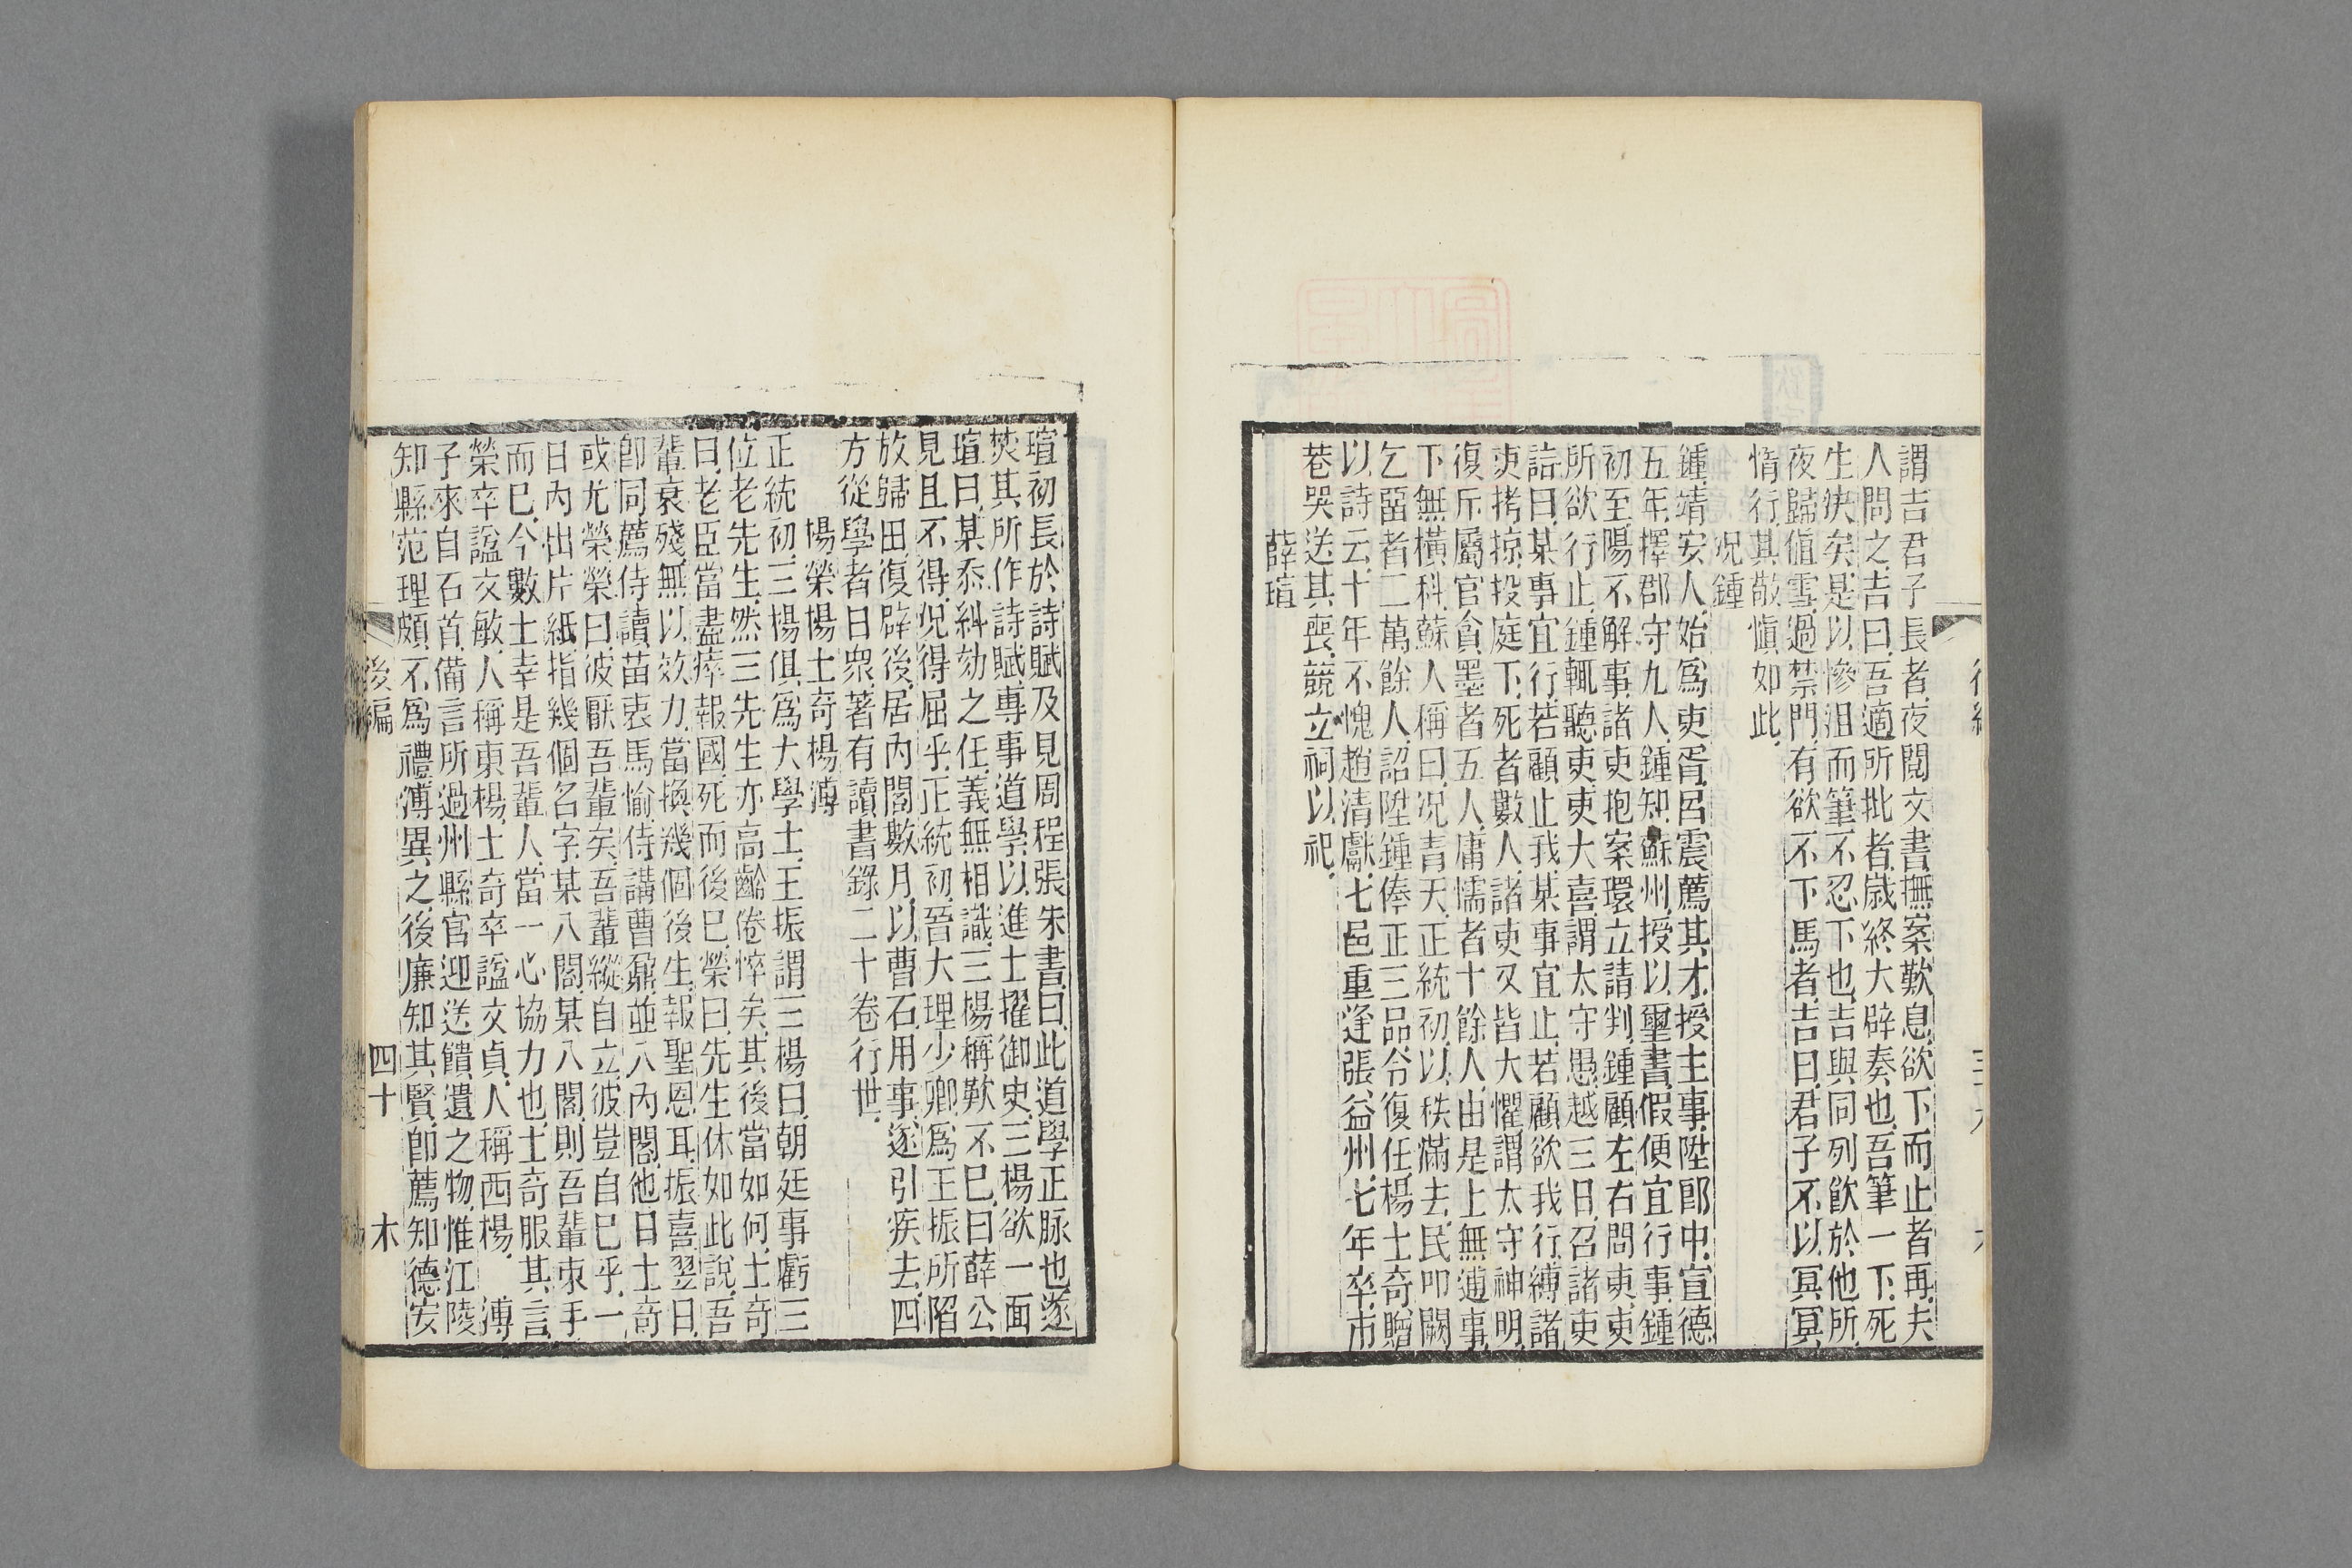 謂吉君子長者夜閱文書撫案歎息欲下而止者再夫
人問之吉曰吾適所批者歲終大辟奏也吾筆一下死
生決矣是以慘沮而筆不忍下也吉與同列飲於他所
夜歸值雪過禁門有欲不下馬者吉曰君子不以冥冥
惰行其敬愼如此
況鍾
鍾靖安人始爲吏胥呂震薦其才授主事陞郎中宣德
五年擇郡守九人鍾知蘇州授以璽書假便宜行事鍾
初至陽不解事諸吏抱案環立請判鍾顧左右問吏吏
所欲行止鍾輒聽吏吏大喜謂太守愚越三日召諸吏
詰曰某事宜行若顧止我某事宜止若顧欲我行縛諸
吏拷掠投庭下死者數人諸吏又皆大懼謂太守神明
復斥屬官貪墨者五人庸懦者十餘人由是上無逋事
下無橫科蘇人稱曰況青天正統初以秩滿去民叩闕
乞留者二萬餘人詔陞鍾俸正三品令復任楊士奇贈
以詩云十年不愧趙清獻七邑重逢張益州七年卒市
巷哭送其喪競立祠以祀
薛瑄
瑄初長於詩賦及見周程張朱書曰此道學正脉也遂
焚其所作詩賦專事道學以進士擢御史三楊欲一面
瑄曰某忝糾劾之任義無相識三楊稱歎不巳曰薛公
見且不得況得屈乎正統初晉大理少卿爲王振所陷
放歸田復辟後居內閣數月以曹石用事遂引疾去四
方從學者日衆著有讀書錄二十卷行世
楊榮楊士奇楊溥
正統初三楊俱爲大學士王振謂三楊曰朝廷事虧三
位老先生然三先生亦高齡倦悴矣其後當如何士奇
曰老臣當盡瘁報國死而後巳榮曰先生休如此說吾
輩衰殘無以效力當換幾個後生報聖恩耳振喜翌日
卽同薦侍讀苗衷馬愉侍講曹鼐並入內閣他日士奇
或尤榮榮曰彼厭吾輩矣吾輩縱自立彼豈自巳乎一
日內出片紙指幾個名字某入閣某入閣則吾輩束手
而巳今數士幸是吾輩人當一心協力也士奇服其言
榮卒諡文敏人稱東楊士奇卒諡文貞人稱西楊　溥
子來自石首備言所過州縣官迎送饋遺之物惟江陵
知縣范理頗不爲禮溥異之後廉知其賢卽薦知德安
後編　四十　木